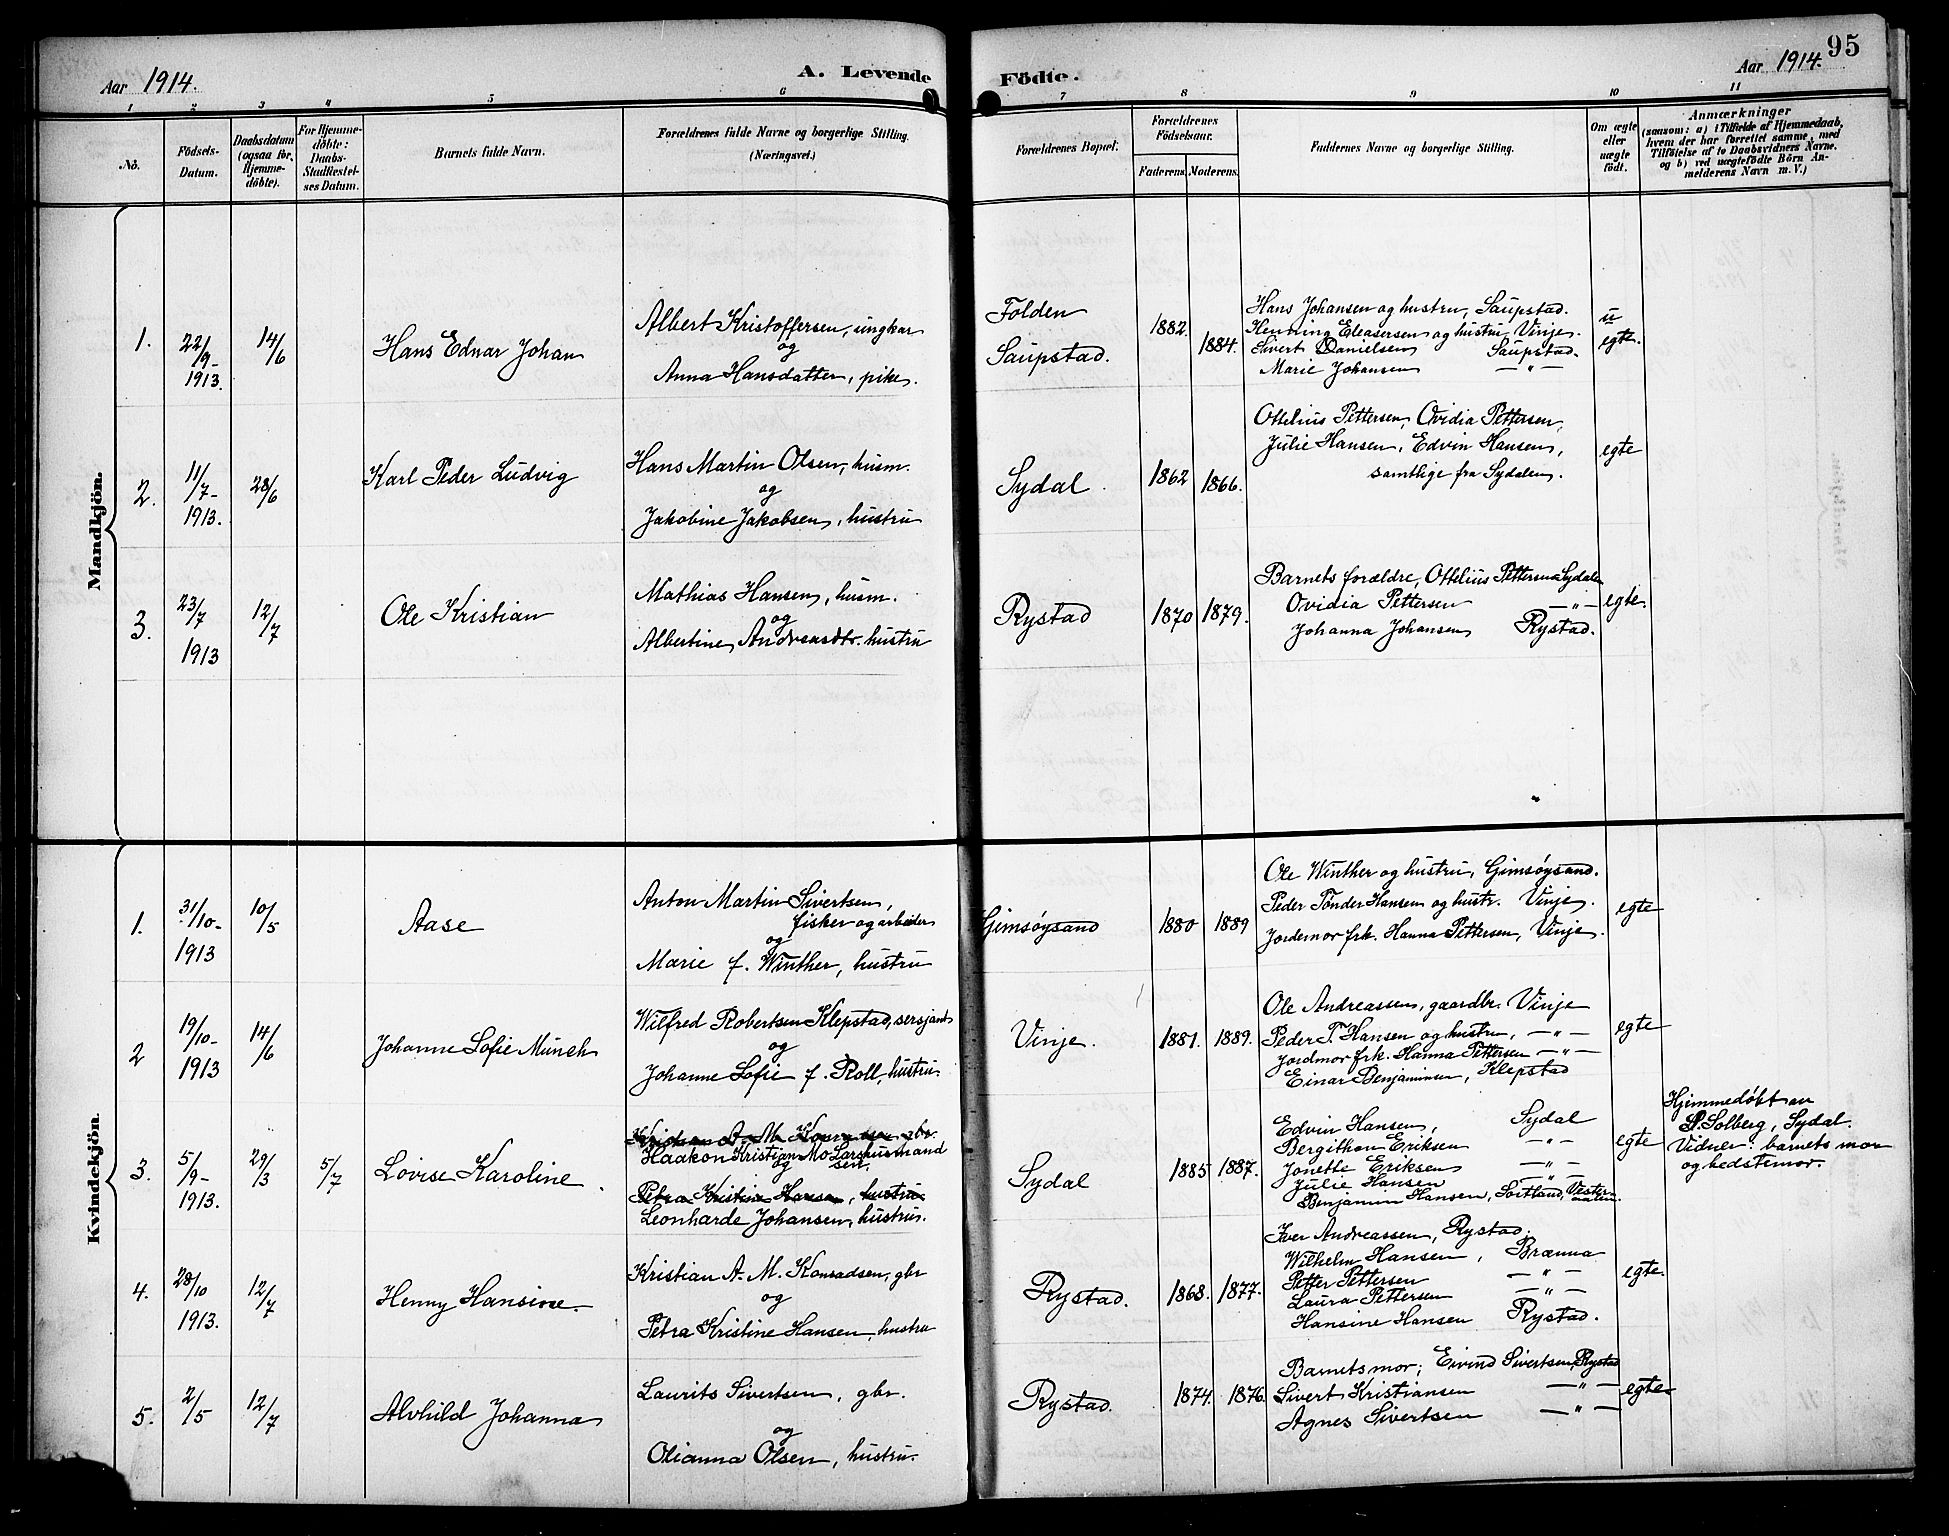 95
Aar 1914.
A. Levende Födte.
Aar 1914.
1 2 3 4 5 6 7 8 9 10 11
No.
Födsels-
Datum.
Daabsdatum
(ogsaa for
Hjemme-
döbte).
For Hjemme-
döbte:
Daabs-
Stadfæstel-
ses Datum.
Barnets fulde Navn.
Forældrenes fulde Navne og borgerlige Stilling.
(Næringsvei.)
Forældrenes Bopæl.
Forældrenes
Födselsaar.
Faderens. Moderens.
Faddernes Navne og borgerlige Stilling.
Om ægte
eller
uægte
födt.
Anmærkninger
(saasom: a) i Tilfælde af Hjemmedaab,
hvem der har forrettet samme, med
Tilföielse af to Daabsvidners Navne.
og b) ved uægtefödte Börn An-
melderens Navn m. V.)
Mandkjön.
1.
22/9-
1913.
14/6
Hans Ednar Johan
Albert Kristoffersen, ungkar
og
Anna Hansdatter, pike.
Folden
Saupstad.
1882. 1884.
Hans Johansen og hustru, Saupstad.
Henning Eleasersen og hustru, Vinje.
Sivert Danielsen Saupstad.
Marie Johansen —"—
u
egte.
2.
11/7-
1913.
28/6
Karl Peder Ludvig
Hans Martin Olsen, husm.
og
Jakobine Jakobsen, hustru
Sydal.
1862 1866.
Ottelius Pettersen, Ovidia Pettersen,
Julie Hansen, Edvin Hansen,
samtlige fra Sydalen.
egte
3.
23/7
1913
12/7
Ole Kristian
Mathias Hansen, husm.
og
Albertine Andreasdtr. hustru
Rystad
1870 1879.
Barnets forældre, Ottelius Pettersen Sydalen
Ovidia Pettersen —"—
Johanna Johansen Rystad.
egte.
Kvindekjön.
1.
31/10-
1913
10/5
Aase
Anton Martin Sivertsen,
fisker og arbeider
og
Marie f. Winther, hustru
Gimsöysand
1880 1889
Ole Winther og hustru, Gimsöysand.
Peder Tönder Hansen og hustr. Vinje.
Jordemor frk. Hanna Pettersen, Vinje.
egte
2
19/10-
1913
14/6
Johanne Sofie Munch
Wilfred Robertsen Klepstad, sersjant
og
Johanne Sofie f. Roll, hustru.
Vinje.
1881. 1889.
Ole Andreassen, gaardbr. Vinje
Peder T. Hansen og hustru, —"—
Jordmor frk. Hanna Pettersen —"—
Einar Benjaminsen, Klepstad
egte
3.
5/9-
1913.
29/3
5/7
Lovise Karoline.
Kristian A. M. Konradsen gbr.
Haakon Kristian Mo Larshusmand
og sen.
Petra Kristine Hansen, hustru
Leonharde Johansen, hustru.
Sydal
1885 1887.
Edvin Hansen, Sydal
Bergithon Eriksen —"—
Jonette Eriksen —"—
Julie Hansen —"—
Benjamin Hansen, Sortland, Vester-
aalen.
egte
Hjemmedøbt av
P. Solberg, Sydal.
Vidner: barnets mor
og bedstemor.
4.
28/10
1913.
12/7
Henny Hansine.
Kristian A. M. Konradsen, gbr
og
Petra Kristine Hansen, hustru
Rystad.
1868. 1877.
Iver Andreassen, Rystad.
Wilhelm Hansen, Brænna
Petter Pettersen —"—
Laura Pettersen —"—
Hansine Hansen Rystad.
egte.
5.
2/5
12/7
Alvhild Johanna
Laurits Sivertsen, gbr.
og
Olianna Olsen, hustru.
Rystad.
1874. 1876.
Barnets mor; Eivind Sivertsen, Rystad
Sivert Kristiansen —"—
Agnes Sivertsen —"—
egte